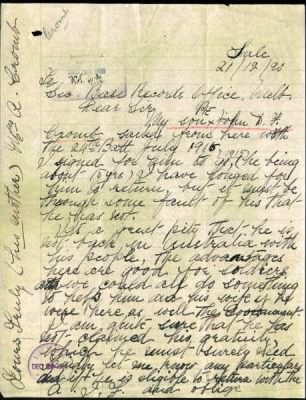 Cromb
Sale
21/12/20
To
Sec. Base Records Office, Melb.
Dear Sir
Re
My son x John D. F.
Cromb, sailed from here with
the 24th Batt July 1915
I signed for him to go, (he being
about 18 yrs) I have longed for
him to return, but it must be
through some fault of his that
he has not.
It is a great pity that he is
not back in Australia with
his people, The advantages
here are good for soldiers
and we, could all do something
to help him and his wife if he
were there as well the Government.
I am, quite sure that he has
not claimed his gratuity,
though he must surely need
let me, know any particulars
if he is eligible to return with the
A. I. F. and oblige
Yours Truly (his mother) Mrs A. Cromb
DEC